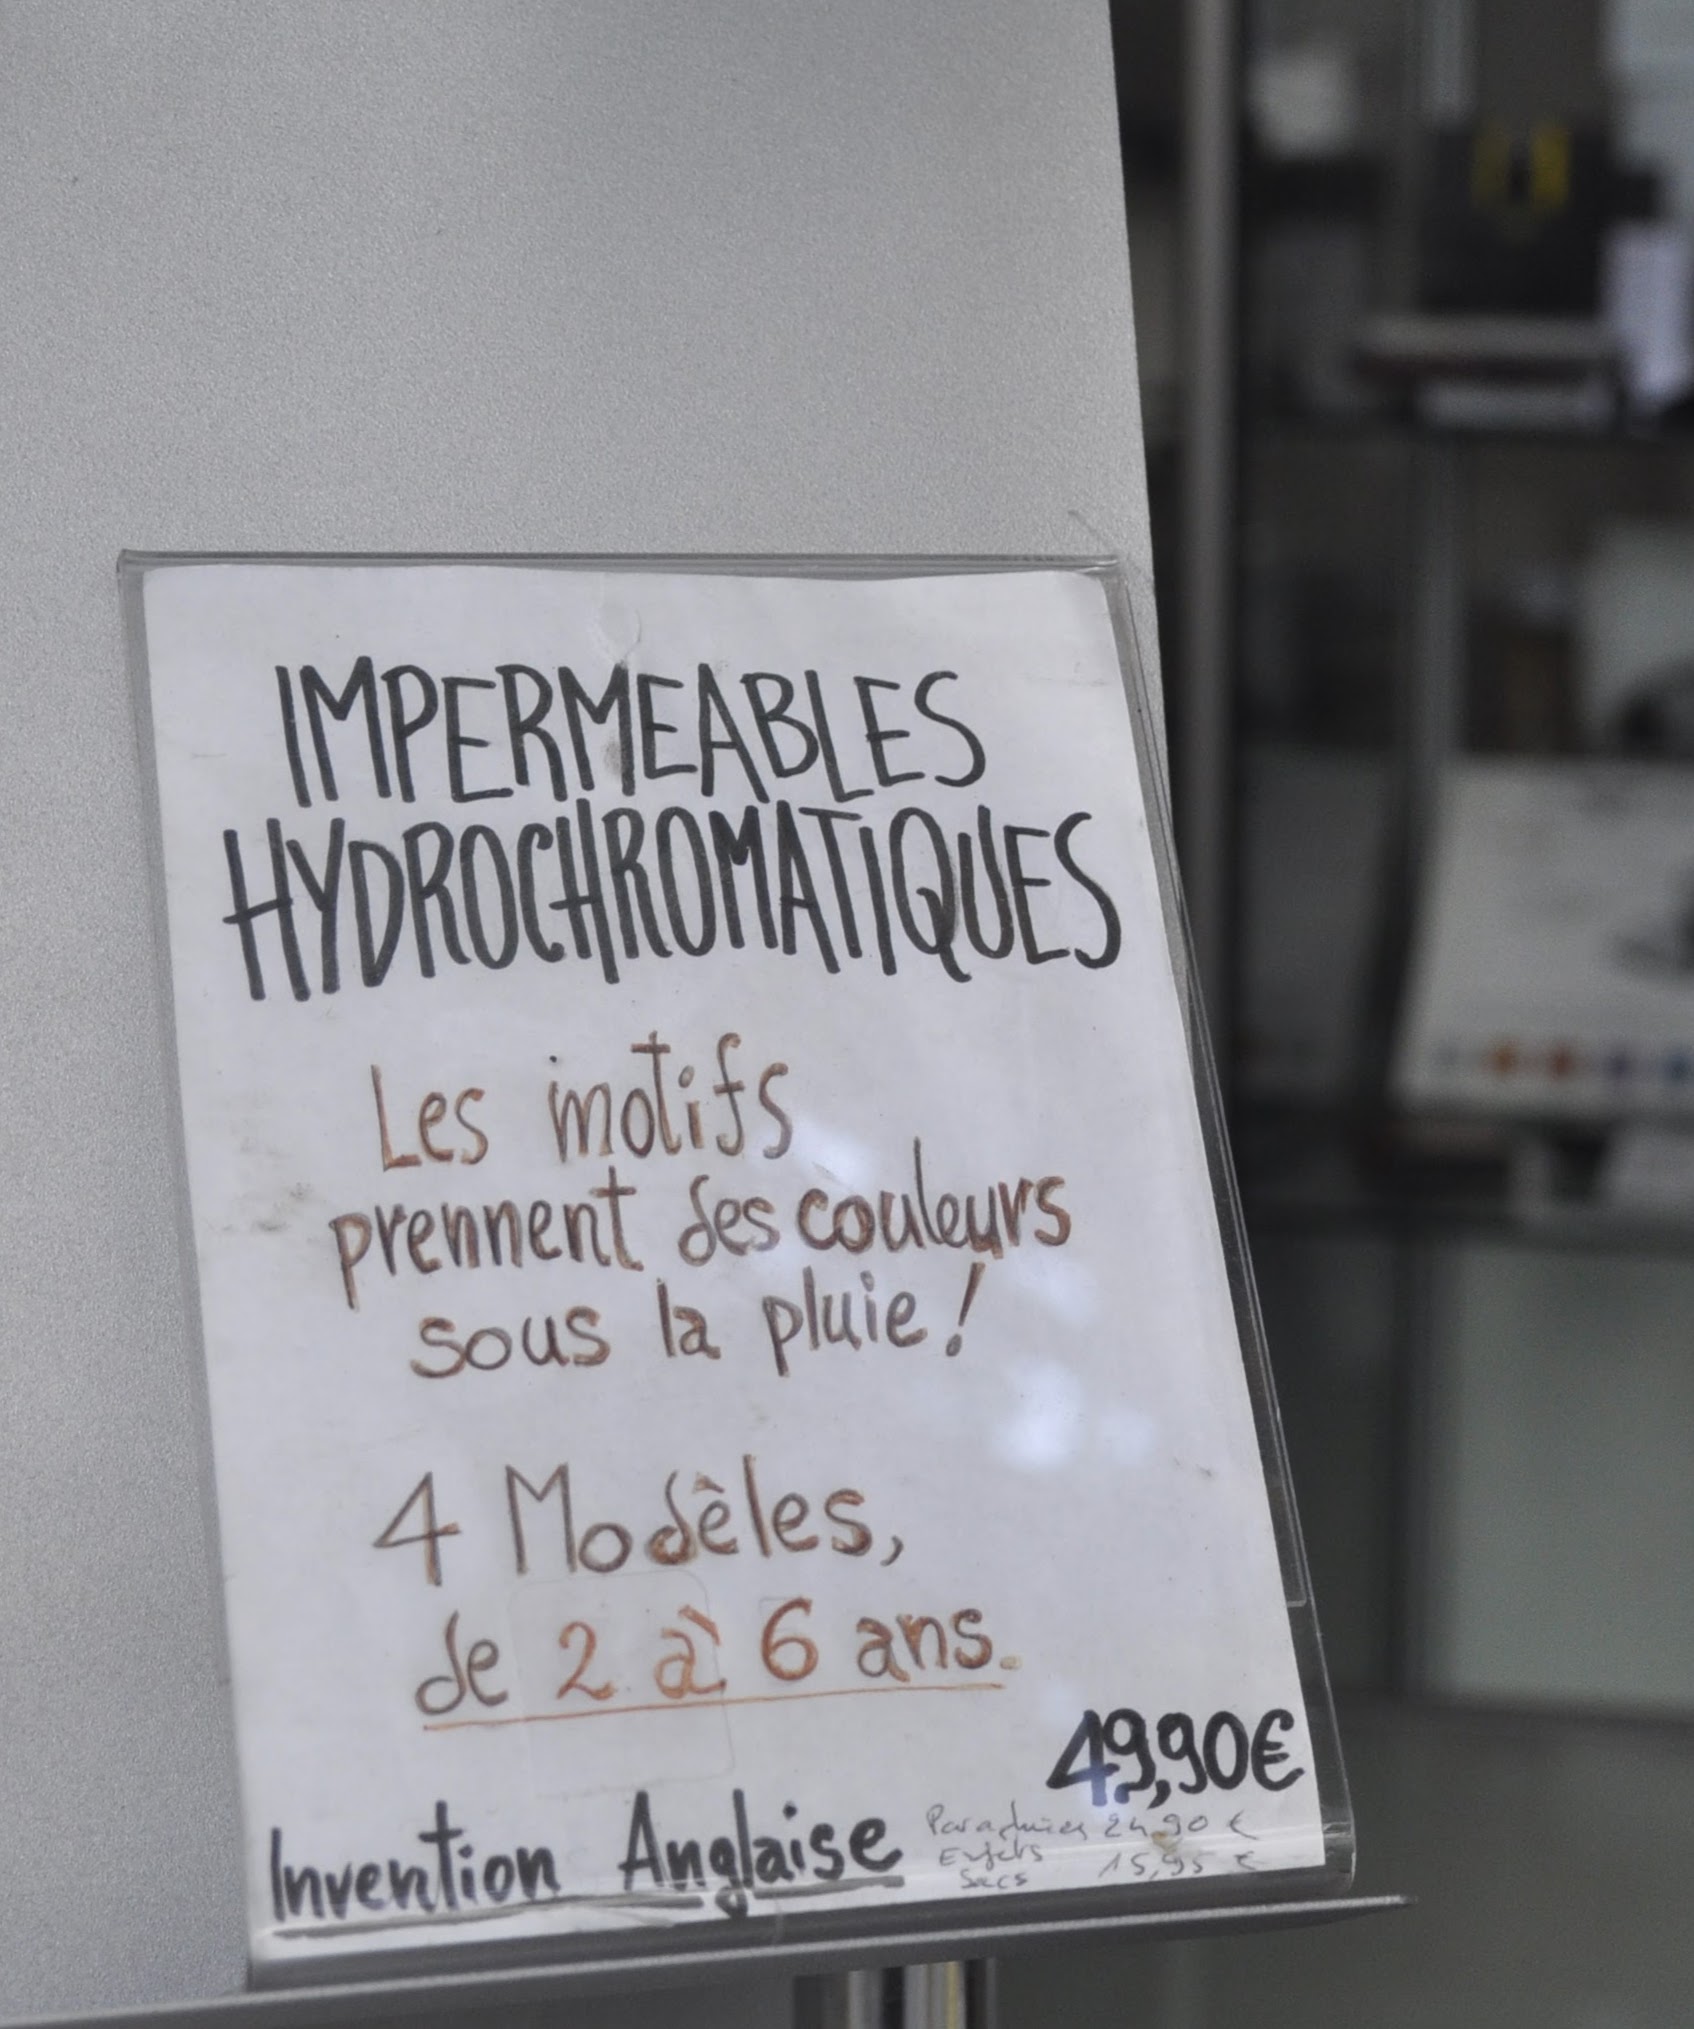 IMPERMEABLES
HYDROCHROMATIQUES
Les motifs
prennent des couleurs
sous la pluie !
4 Modèles,
de 2 à 6 ans.
49,90€
Invention Anglaise
24,90 €
Sacs 15,95 €